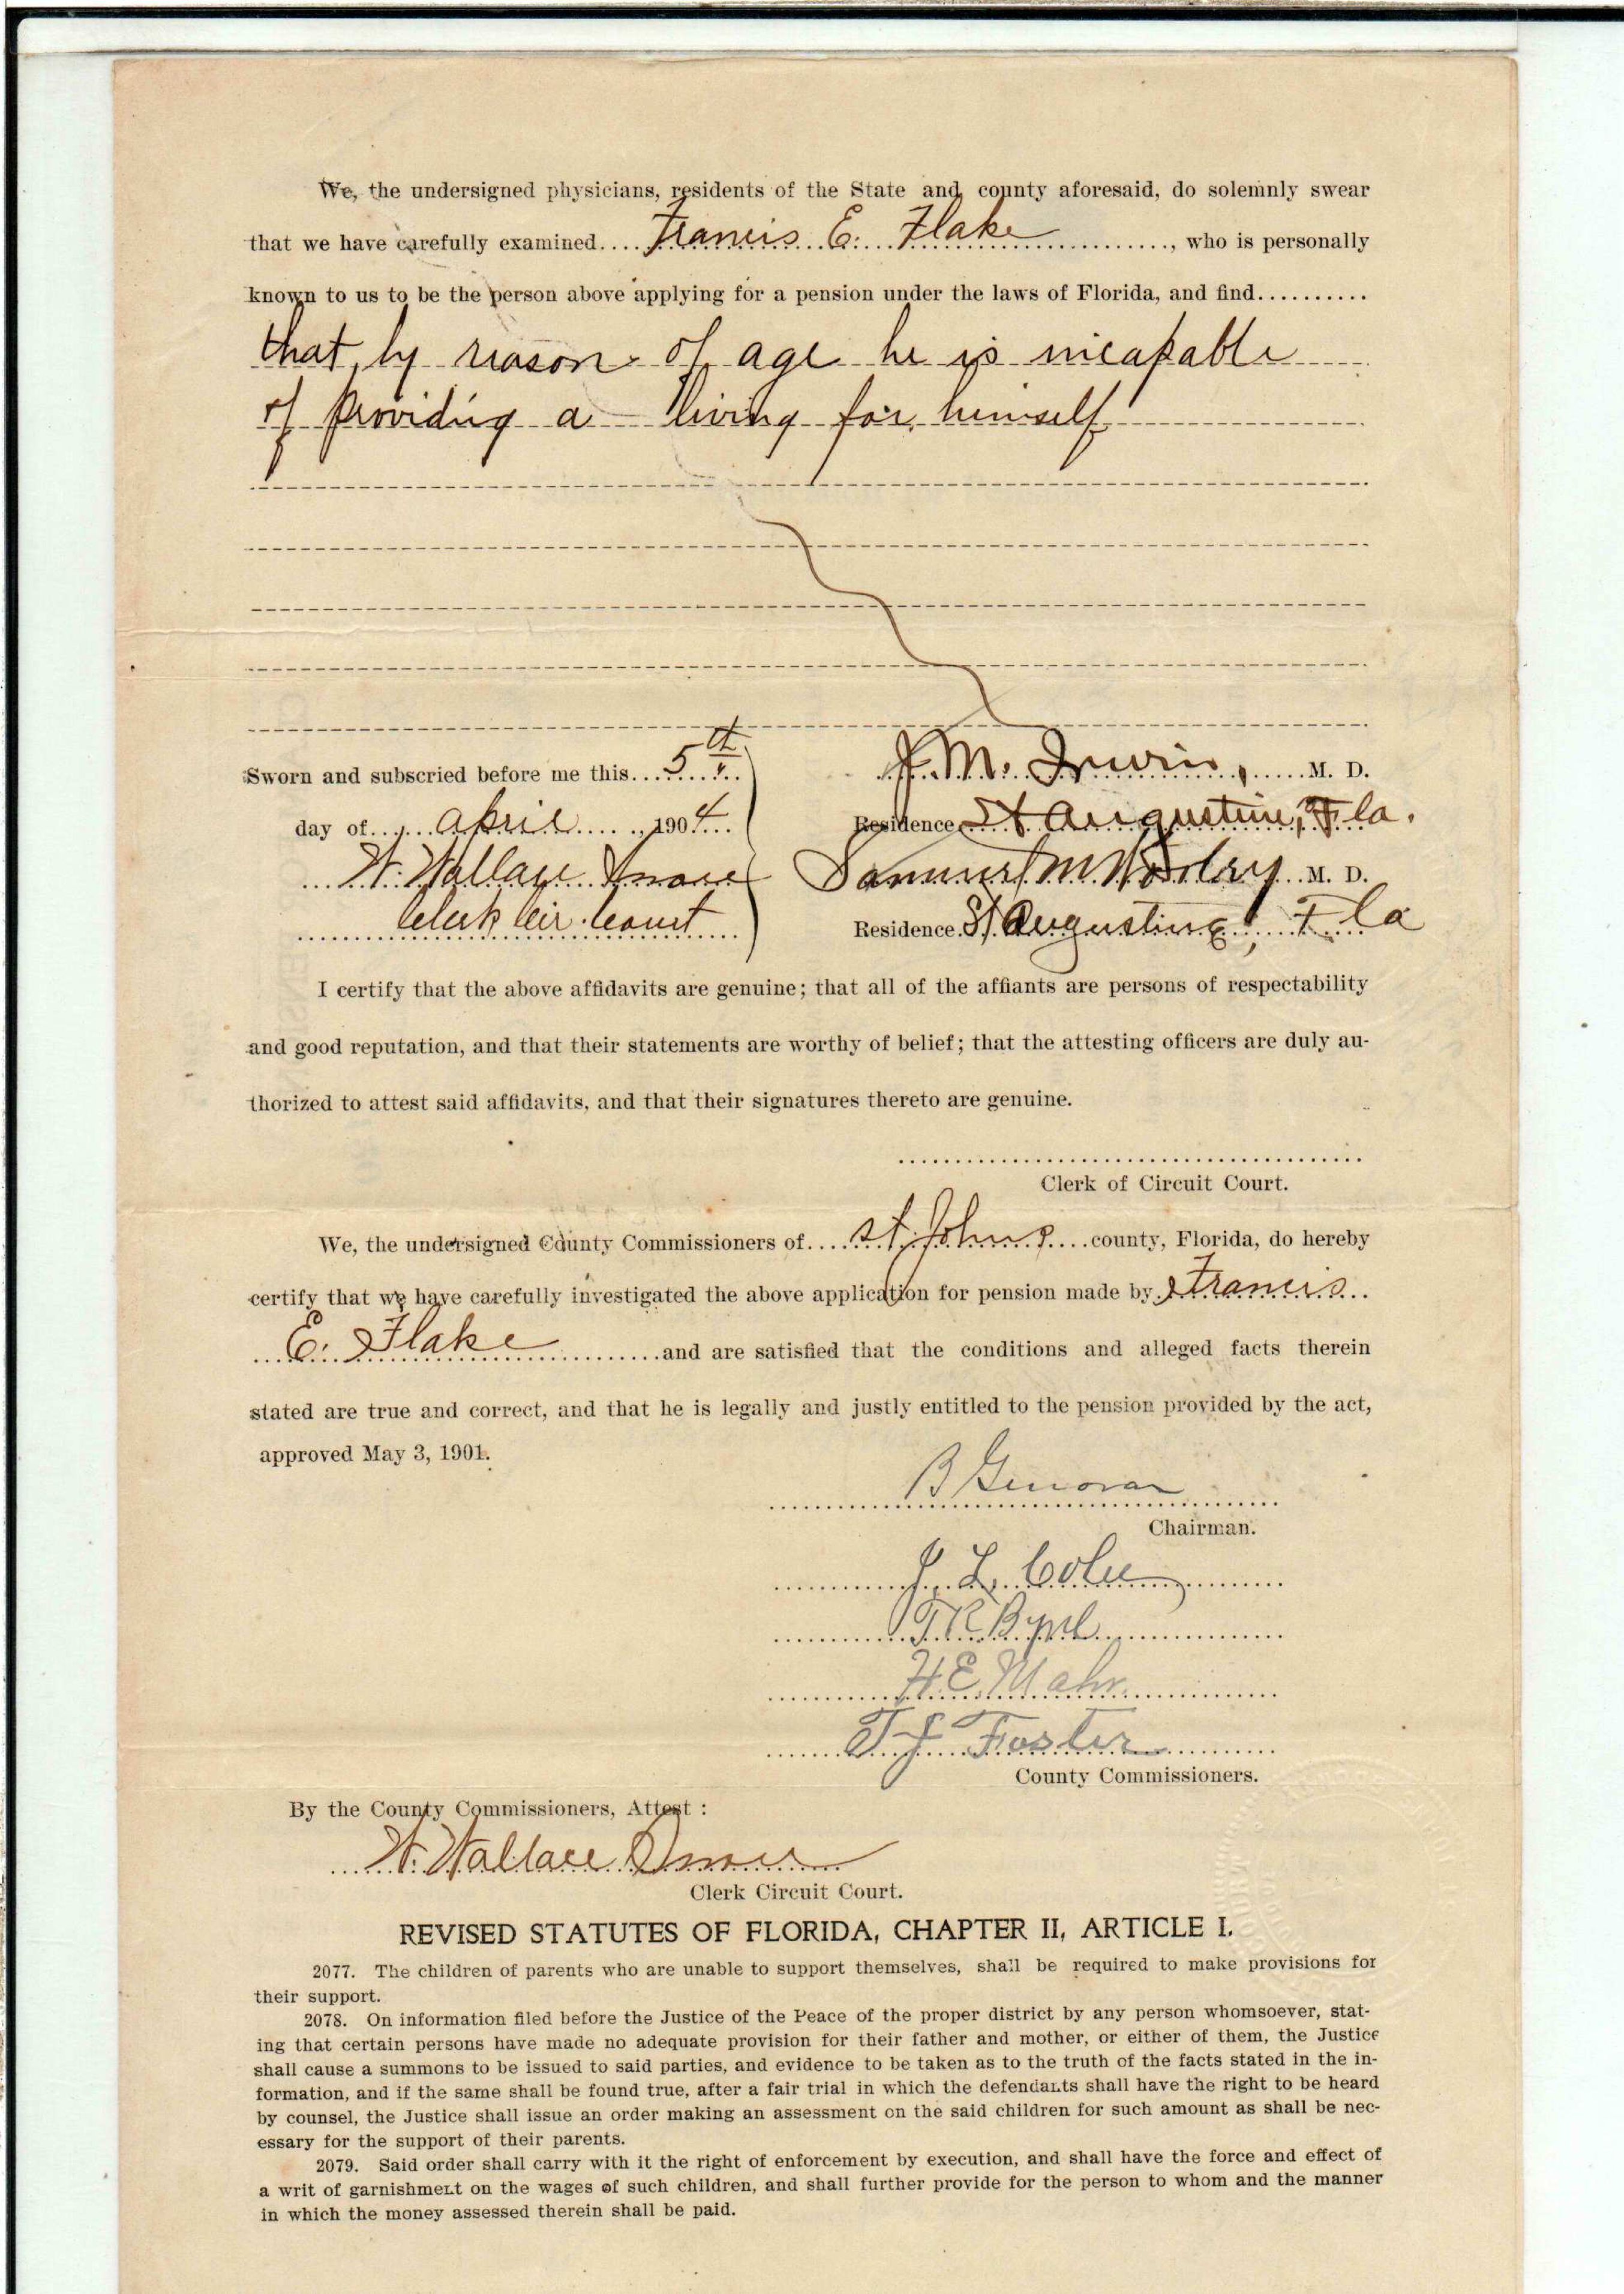 We, the undersigned physicians, residents of the State and county aforesaid, do solemnly swear
that we have carefully examined.... Francis E. Flake ...................., who is personally
known to us to be the person above applying for a pension under the laws of Florida, and find..........
that, by reason of age he is incapable
of providing a living for himself
Sworn and subscried before me this... 5th
J. M. Irwin, ......M. D.
day of...... April ......, 1904...
Residence St Augustine, Fla.
W. Wallace Snow
Samuel M. D.
Clerk Cir. Court
Residence. St Augustine, Fla
I certify that the above affidavits are genuine; that all of the affiants are persons of respectability
and good reputation, and that their statements are worthy of belief; that the attesting officers are duly au-
thorized to attest said affidavits, and that their signatures thereto are genuine.
Clerk of Circuit Court.
We, the undersigned County Commissioners of.... St. Johns ....county, Florida, do hereby
certify that we have carefully investigated the above application for pension made by Francis
E. Flake ..........and are satisfied that the conditions and alleged facts therein
stated are true and correct, and that he is legally and justly entitled to the pension provided by the act,
approved May 3, 1901.
B Genovar
Chairman.
J. L. Colee
T R
H. E. Mahr.
T J Foster
County Commissioners.
By the County Commissioners, Attest :
W. Wallace Snow
Clerk Circuit Court.
REVISED STATUTES OF FLORIDA, CHAPTER II, ARTICLE I.
2077. The children of parents who are unable to support themselves, shall be required to make provisions for
their support.
2078. On information filed before the Justice of the Peace of the proper district by any person whomsoever, stat-
ing that certain persons have made no adequate provision for their father and mother, or either of them, the Justice
shall cause a summons to be issued to said parties, and evidence to be taken as to the truth of the facts stated in the in-
formation, and if the same shall be found true, after a fair trial in which the defendants shall have the right to be heard
by counsel, the Justice shall issue an order making an assessment on the said children for such amount as shall be nec-
essary for the support of their parents.
2079. Said order shall carry with it the right of enforcement by execution, and shall have the force and effect of
a writ of garnishment on the wages of such children, and shall further provide for the person to whom and the manner
in which the money assessed therein shall be paid.